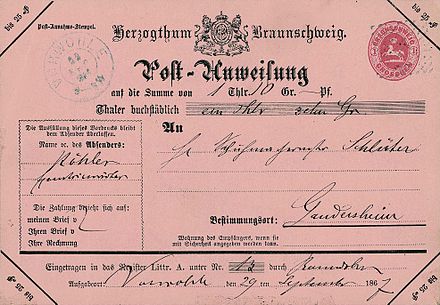 bis 25 Thlr.
Post-Annahme-Stempel.
Herzogthum Braunschweig.
VORWOHLE
Post-Anweisung
auf die Summe von 1 Thlr. 10 Gr. – Pf.
Thaler buchstäblich ein Thlr zehn Gr.
Die Ausfüllung dieses Vordrucks bleibt
dem Absender überlassen.
Name &c. des Absenders:
An
Schlüter
Die Zahlung bezieht sich auf:
meinen Brief v.
Ihren Brief v.
Ihre Rechnung
Bestimmungsort: Gandersheim
Wohnung des Empfängers, wenn sie
mit Sicherheit angegeben werden kann.
Eingetragen in das Register Littr. A. unter Nr. 12 durch
Aufgabeort Vorwohle den 29 ten September 1867